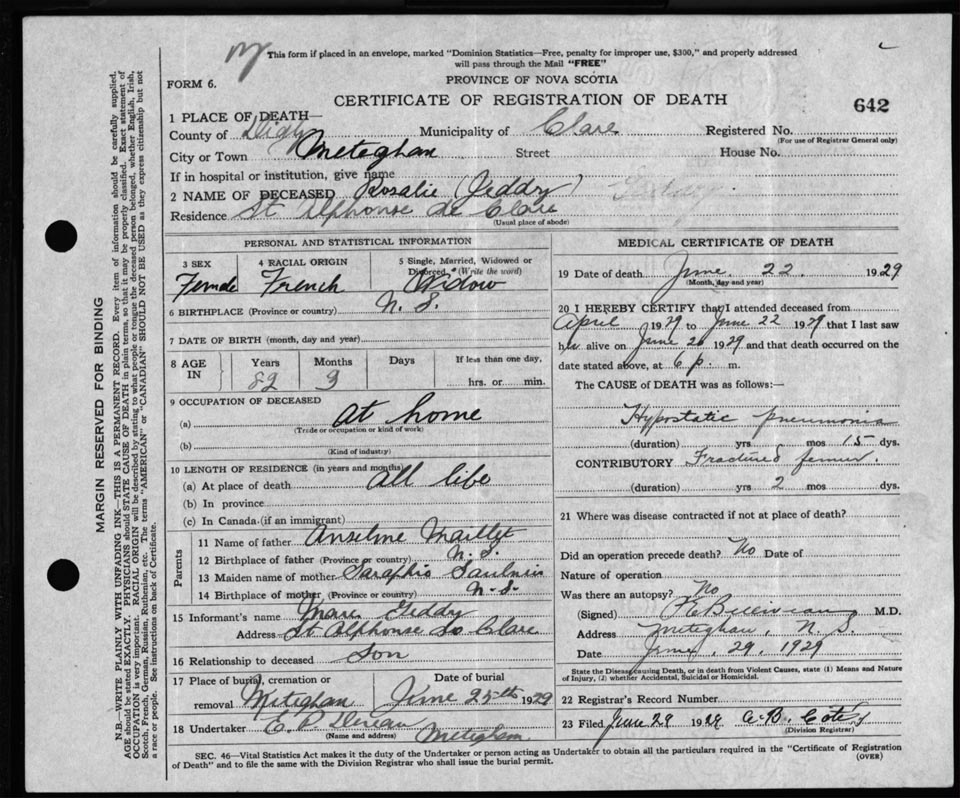 This form if placed in an envelope, marked "Dominion Statistics—Free, penalty for improper use, $300," and properly addressed
will pass through the Mail "FREE"
FORM 6.
PROVINCE OF NOVA SCOTIA
CERTIFICATE OF REGISTRATION OF DEATH
642
1 PLACE OF DEATH—
County of Digby Municipality of Clare Registered No.
(For use of Registrar General only)
City or Town Meteghan Street House No.
If in hospital or institution, give name
2 NAME OF DECEASED Rosalie (Jeddry)
Residence St Alphonse de Clare
(Usual place of abode)
PERSONAL AND STATISTICAL INFORMATION
3 SEX 4 RACIAL ORIGIN 5 Single, Married, Widowed or
Divorced (Write the word)
Female French Widow
6 BIRTHPLACE (Province or country) N. S.
7 DATE OF BIRTH (month, day and year)
8 AGE IN Years Months Days If less than one day,
82 3 hrs. or min.
9 OCCUPATION OF DECEASED
(a) at home
(Trade or occupation or kind of work)
(b)
(Kind of industry)
10 LENGTH OF RESIDENCE (in years and months)
(a) At place of death all life
(b) In province
(c) In Canada (if an immigrant)
Parents
11 Name of father Anselme Maillet
12 Birthplace of father (Province or country) N. S.
13 Maiden name of mother Saulnier
14 Birthplace of mother (Province or country) N. S.
15 Informant's name Geddry
Address St Alphonse Clare
16 Relationship to deceased Son
17 Place of burial, cremation or Date of burial
removal Meteghan June 25th 1929
18 Undertaker E. P.
(Name and address) Meteghan.
MEDICAL CERTIFICATE OF DEATH
19 Date of death June 22. 1929
(Month, day and year)
20 I HEREBY CERTIFY that I attended deceased from
April 1929 to June 22 1929 that I last saw
her alive on June 1929 and that death occurred on the
date stated above, at 6 p. m.
The CAUSE of DEATH was as follows:—
Hypostatic pneumonia
(duration) yrs mos 15 dys.
CONTRIBUTORY Fractured femur.
(duration) yrs 2 mos dys.
21 Where was disease contracted if not at place of death?
Did an operation precede death? No Date of
Nature of operation
Was there an autopsy? No
(Signed) Belliveau M.D.
Address Meteghan, N. S.
Date June, 29, 1929
State the Disease causing Death, or in death from Violent Causes, state (1) Means and Nature
of Injury, (2) whether Accidental, Suicidal or Homicidal.
22 Registrar's Record Number
23 Filed June 29 1929 A. B.
(Division Registrar)
SEC. 46—Vital Statistics Act makes it the duty of the Undertaker or person acting as Undertaker to obtain all the particulars required in the "Certificate of Registration
of Death" and to file the same with the Division Registrar who shall issue the burial permit.
(OVER)
MARGIN RESERVED FOR BINDING
N.B.—WRITE PLAINLY WITH UNFADING INK—THIS IS A PERMANENT RECORD. Every item of information should be carefully supplied.
AGE should be stated EXACTLY. PHYSICIANS should STATE CAUSE OF DEATH in plain terms, so that it may be properly classified. Exact statement of
OCCUPATION is very important. RACIAL ORIGIN will be described by stating to what people or tongue the deceased person belonged, whether English, Irish,
Scotch, French, German, Russian, Ruthenian, etc. The terms "AMERICAN" or "CANADIAN" SHOULD NOT BE USED as they express citizenship but not
a race or people. See instructions on back of Certificate.